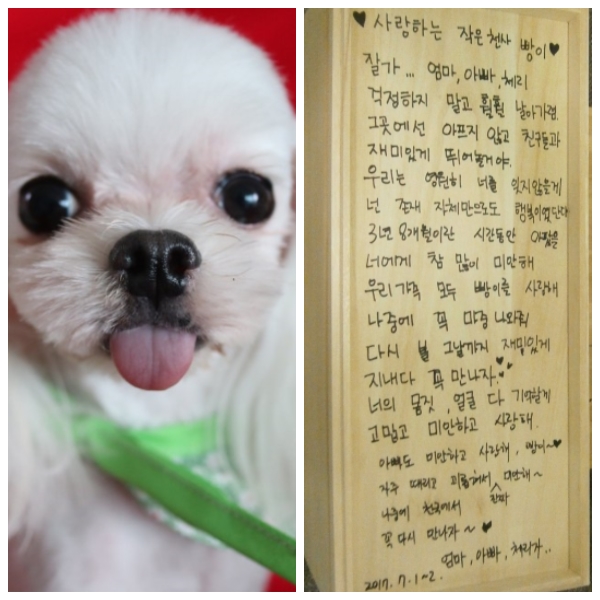 ♥ 사랑하는 작은천사 빵이 ♥
잘가... 엄마, 아빠, 체리
걱정하지 말고 훨훨 날아가렴.
그곳에선 아프지 않고 친구들과
재미있게 뛰어놀거야.
우리는 영원히 너를 잊지않을게
넌 존재 자체만으로도 행복이였단다
3년 8개월이란 시간동안 아팠을
너에게 참 많이 미안해
우리가족 모두 빵이를 사랑해
나중에 꼭 마중 나와줘
다시 볼 그날까지 재밌있게
지내다 꼭 만나자.♥
너의 몸짓, 얼굴 다 기억할게
고맙고 미안하고 사랑해.
아빠도 미안하고 사랑해, 빵이~♥
자주 때리고 괴롭혀서 미안해~
나중에 천국에서
꼭 다시 만나자~ ♥
엄마, 아빠, 체리가..
2017. 7. 1~2.